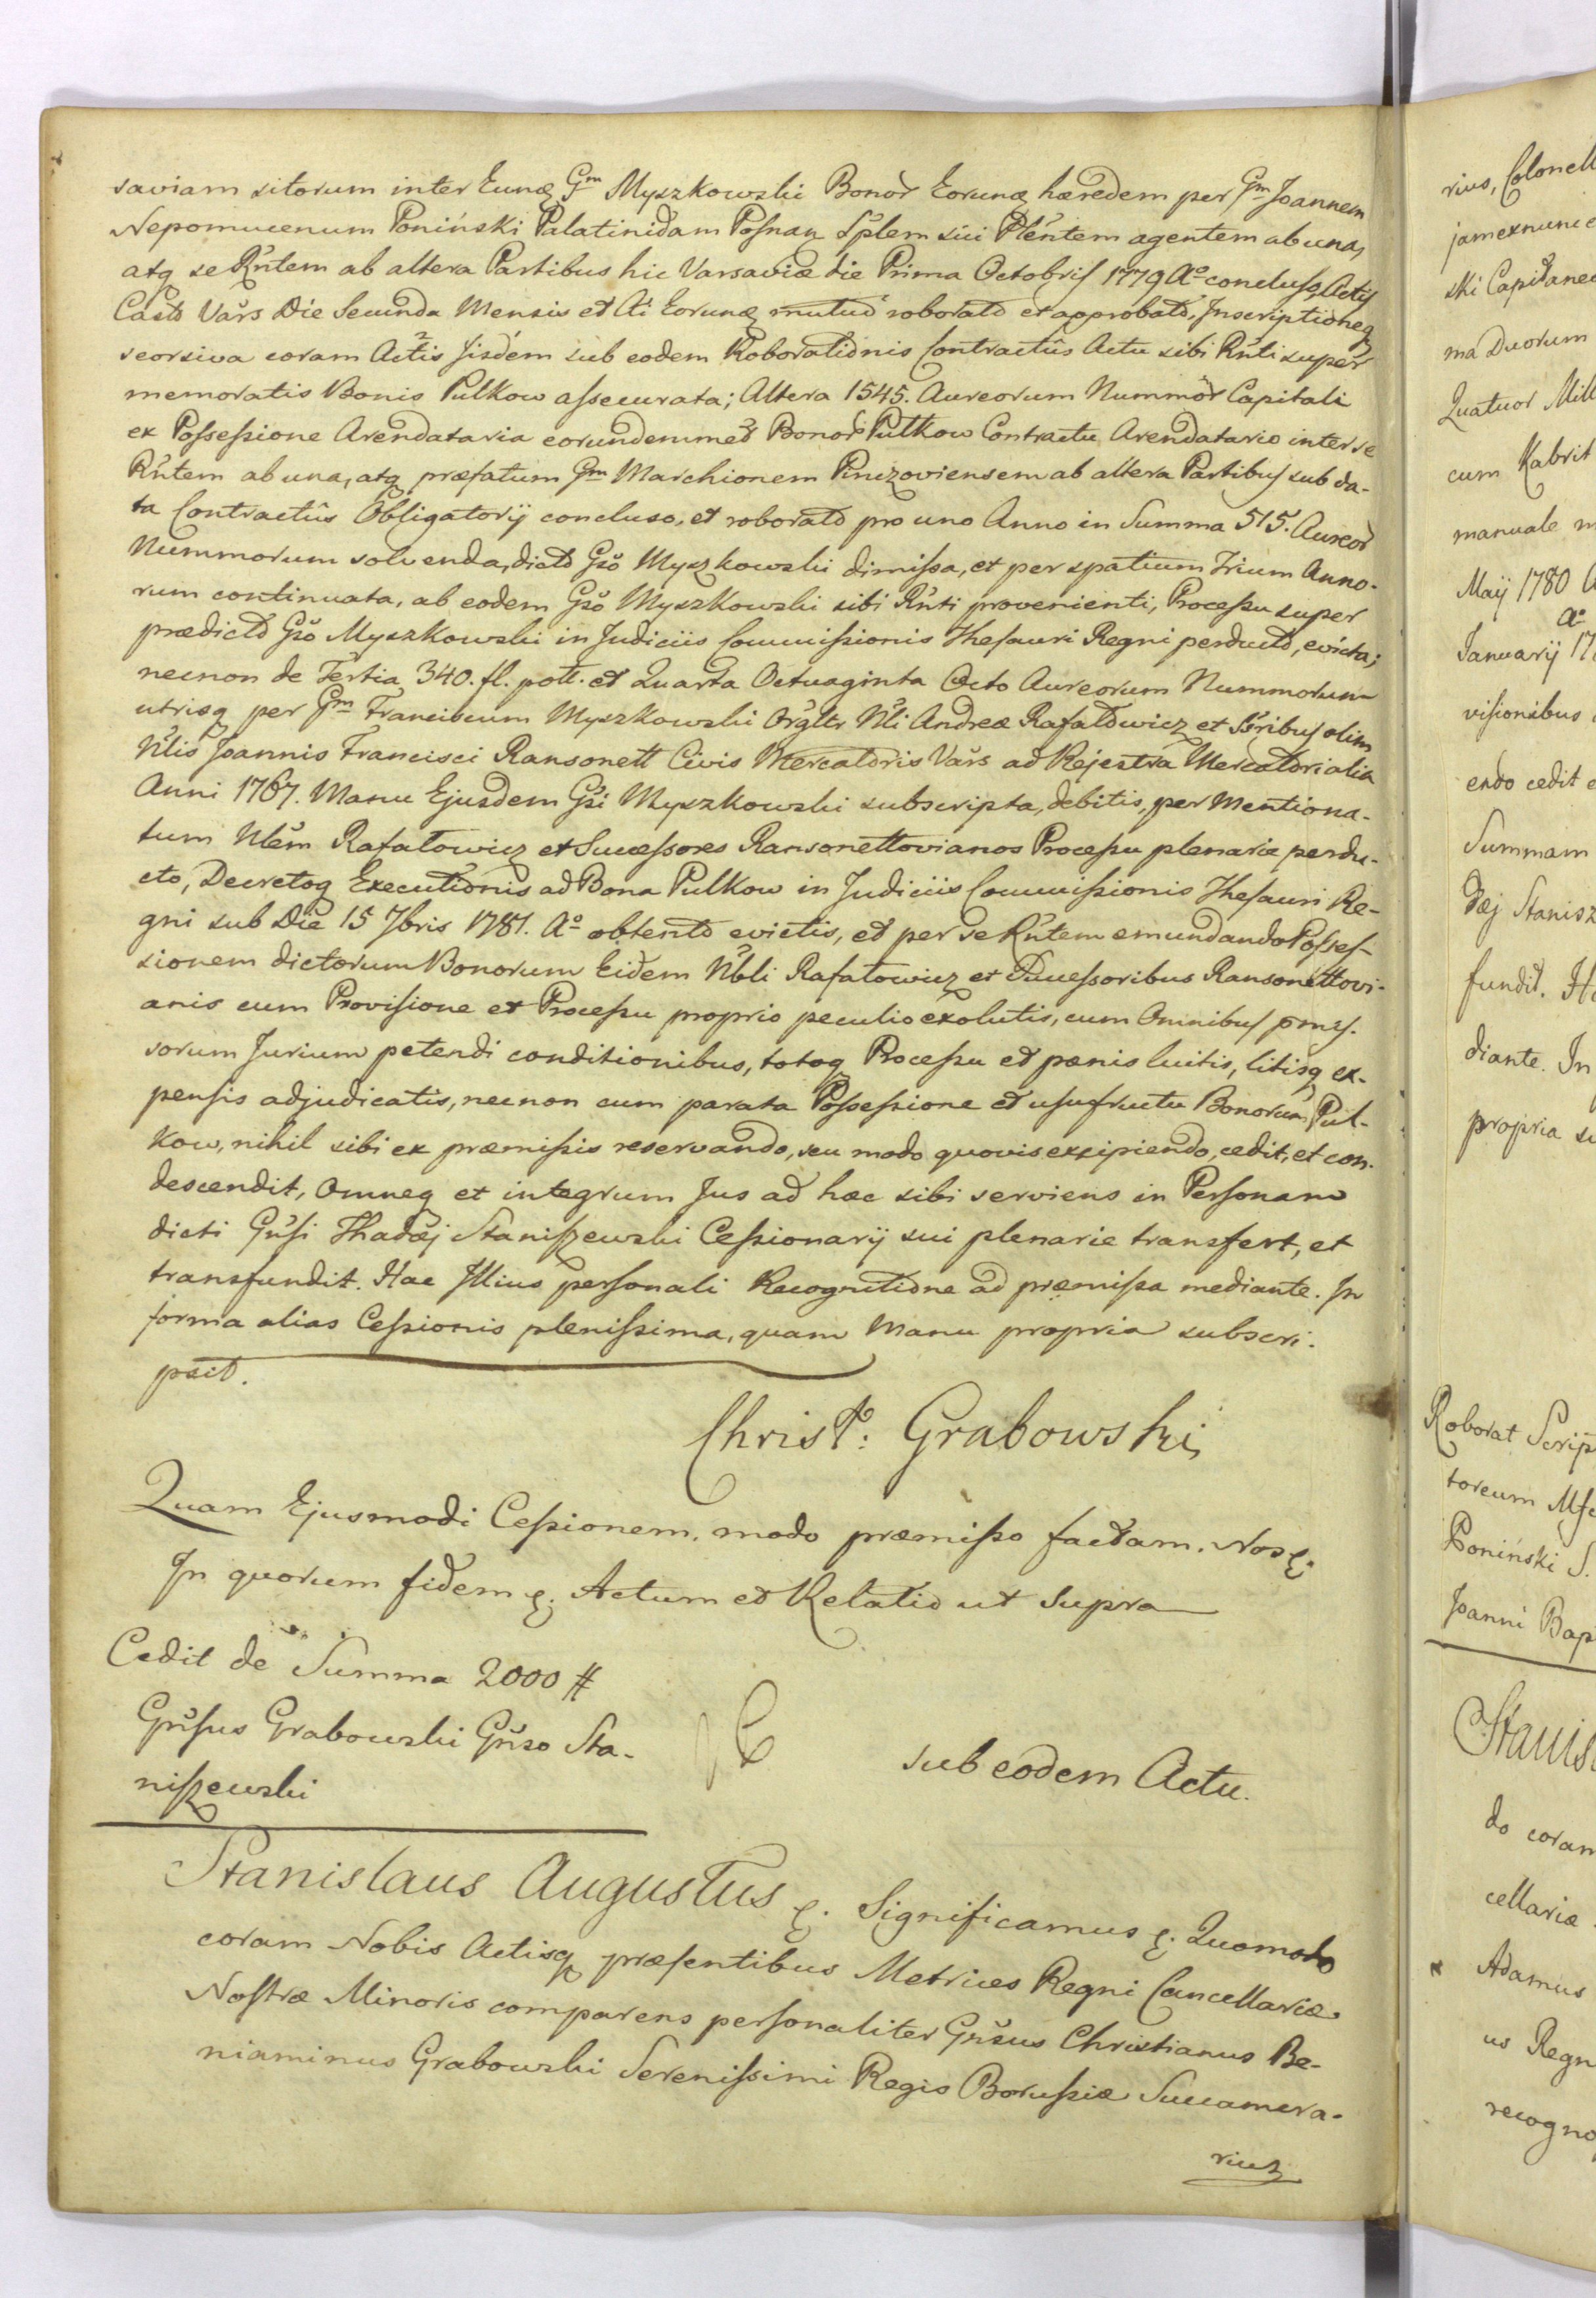 saviam sitorum inter Eundq Gm Myszkowski Bonor̃ Eorunq hæredem per Gm Joannem
Nepomucenum Poniński Palatinidam Posnan Splem sui Plentem agentem ab una,
atq se Rñtem ab altera Partibus hic Varsaviæ die Prima Octobris 1779 Aº concluso, Actis
Casts Vars Die Secunda Mensis et Ai Eorunq mutuo roborato et approbato, Inscriptioneq
seorsiva coram Actis Iisdem sub eodem Roborationis Contractûs Actu sibi Rñti super
memoratis Bonis Pulkow assecurata; Altera 1545. Aureorum Nummor̃ Capitali
ex Possessione Arendataria eorundemmet Bonor̃ Pulkow Contractu Arendatario inter se
Rñtem ab una, atq præfatum Gm Marchionem Pinczoviensem ab altera Partibus sub da-
ta Contractûs Obligatorij concluso, et roborato pro uno Anno in Summa 515. Aureor̃
Nummorum solvenda, dicto Gso Myszkowski dimissa, et per spatium Trium Anno-
rum continuata, ab eodem Gso Myszkowski sibi Rñti provenienti, Processu super
prædicto Gso Myszkowski in Judiciis Commissionis Thesauri Regni perducto, evicta;
necnon de Tertia 340. fl. poll. et Quarta Octuaginta Octo Aureorum Nummorum
utrisq per Gm Franciscum Myszkowski Orgltr Nli Andreæ Rafałowicz et Sßribus olim
Nlis Joannis Francisci Ransonett Civis Mercatoris Vars ad Rejestra Mercatorialia
Anni 1767. Manu Ejusdem Gsi Myszkowski subscripta, debitis, per Mentiona-
tum Nlem Rafałowicz et Successores Ransonettovianos Processu plenarie perdu-
cto, Decretoq Executionis ad Bona Pulkow in Judiciis Commissionis Thesauri Re-
gni sub Die 15 7bris 1781. Aº obtento evictis, et per se Rñtem emundando Posses-
sionem dictorum Bonorum Eidem Nbli Rafałowicz et Successoribus Ransonettovi-
anis cum Provisione et Processu proprio peculio exolutis, cum Omnibus pms.
sorum Jurium petendi conditionibus, totoq Processu et pænis luitis, litisq ex-
pensis adjudicatis, necnon cum parata Possessione et usufructu Bonorum Pul-
kow, nihil sibi ex præmissis reservando, seu modo quovis excipiendo, cedit, et con-
descendit, Omneq et integrum Jus ad hæc sibi serviens in Personam
dicti Gnsi Thadæj Staniszewski Cessionarij sui plenarie transfert, et
transfundit. Hac Illius personali Recognitione ad præmissa mediante. In
forma alias Cessionis plenissima, quam Manu propria subscri-
psit.
Christ: Grabowski
Quam Ejusmodi Cessionem. modo præmisso factam. Nos &.
In quorum fidem &. Actum et Relatio ut Supra
Cedit de Summa 2000 #
Gnsus Grabowski Gnso Sta-
niszewski
sub eodem Actu.
Stanislaus Augustus &. Significamus &. Quomodo
coram Nobis Actisq præsentibus Metrices Regni Cancellariæ
Nostræ Minoris comparens personaliter Gnsus Christianus Be-
niaminus Grabowski Serenissimi Regis Borussiæ Succamera-
rius
rius, Colonell
jam exnunc
ski Capitane
ma Duorum
Quatuor Mill
cum Kabrit
manuale m
Maij 1780 A
aº
Januarij 17
visionibus
endo cedit e
Summam
dæj Stanisz
fundit. Ha
diante. In
propria su
Roborat Scrip
toreum
Poniński S.
Joanni Bap
Stanis
do coram
cellariæ
Adamus
us Regn
recogno